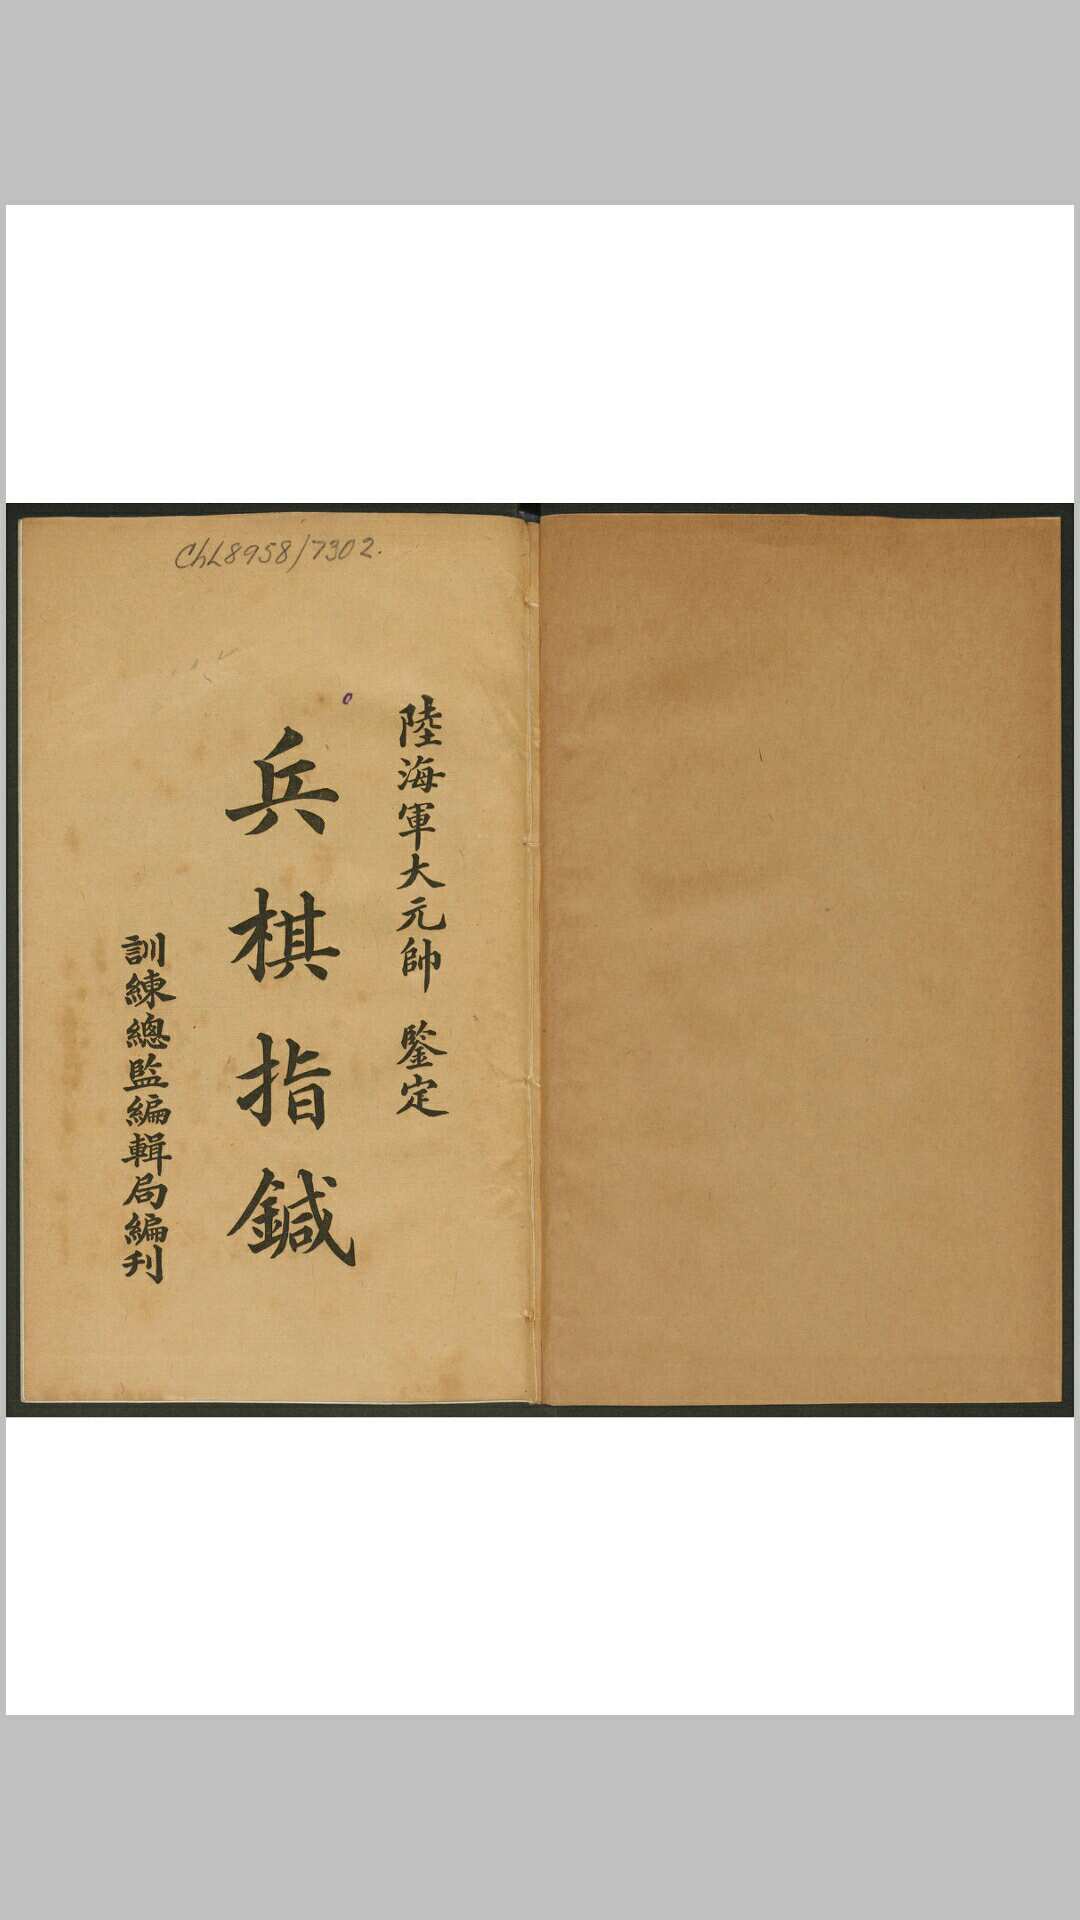 ChL8958/7302.
陸海軍大元帥 鑒定
兵棋指鍼
訓練總監編輯局編刋